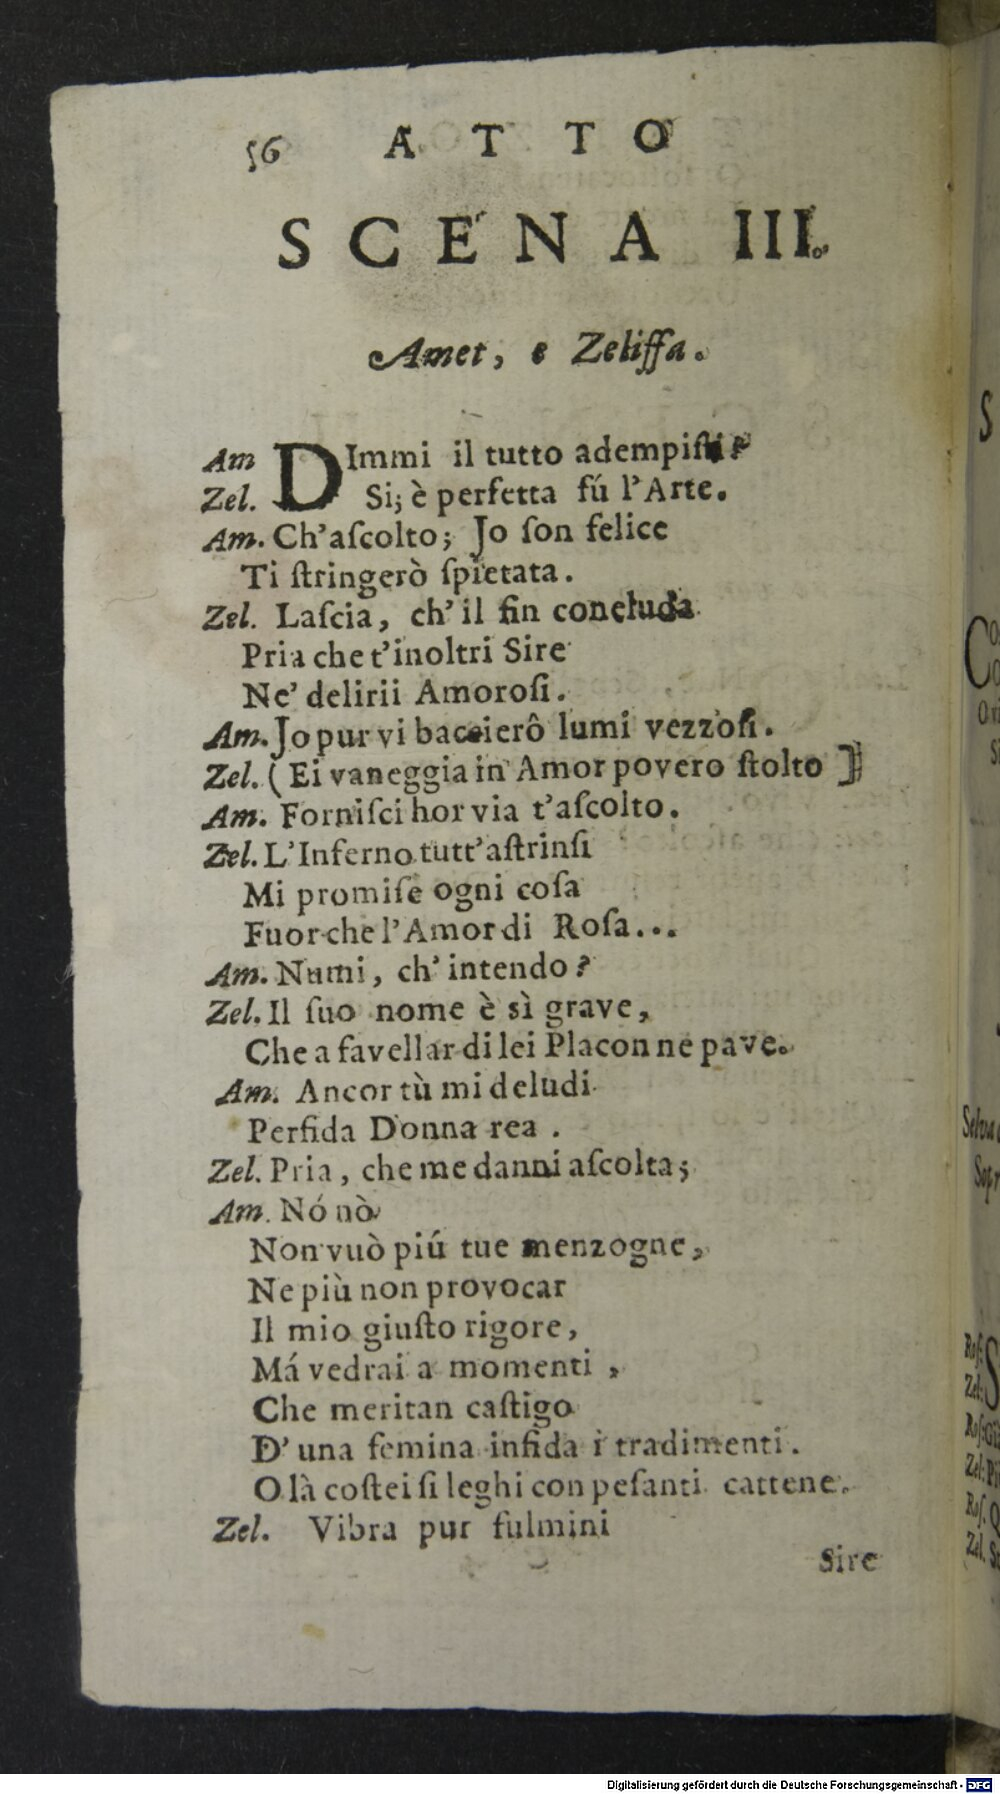 56 ATTO
SCENA III.
Amet, e Zeliſſa.
Am DImmi il tutto adempiſti?
Zel. Si; è perfetta fú l'Arte.
Am. Ch'aſcolto; Jo ſon felice
Ti ſtringerò ſpietata.
Zel. Laſcia, ch'il fin concluda
Pria che t'inoltri Sire
Ne' delirii Amoroſi.
Am. Jo pur vi bacierô lumi vezzoſi.
Zel. (Ei vaneggia in Amor povero ſtolto ]
Am. Forniſci hor via t'aſcolto.
Zel. L'Inferno tutt'aſtrinſi
Mi promiſe ogni coſa
Fuor che l'Amor di Roſa...
Am. Numi, ch'intendo?
Zel. Il ſuo nome è sì grave,
Che a favellar di lei Placon ne pave.
Am. Ancor tù mi deludi
Perfida Donna rea .
Zel. Pria, che me danni aſcolta;
Am. Nó nò
Non vuò piú tue menzogne,
Ne più non provocar
Il mio giuſto rigore,
Má vedrai a momenti ,
Che meritan caſtigo
D'una femina infida i tradimenti.
O là coſtei ſi leghi con peſanti cattene.
Zel. Vibra pur fulmini
Sire
Digitalisierung gefördert durch die Deutsche Forschungsgemeinschaft - DFG